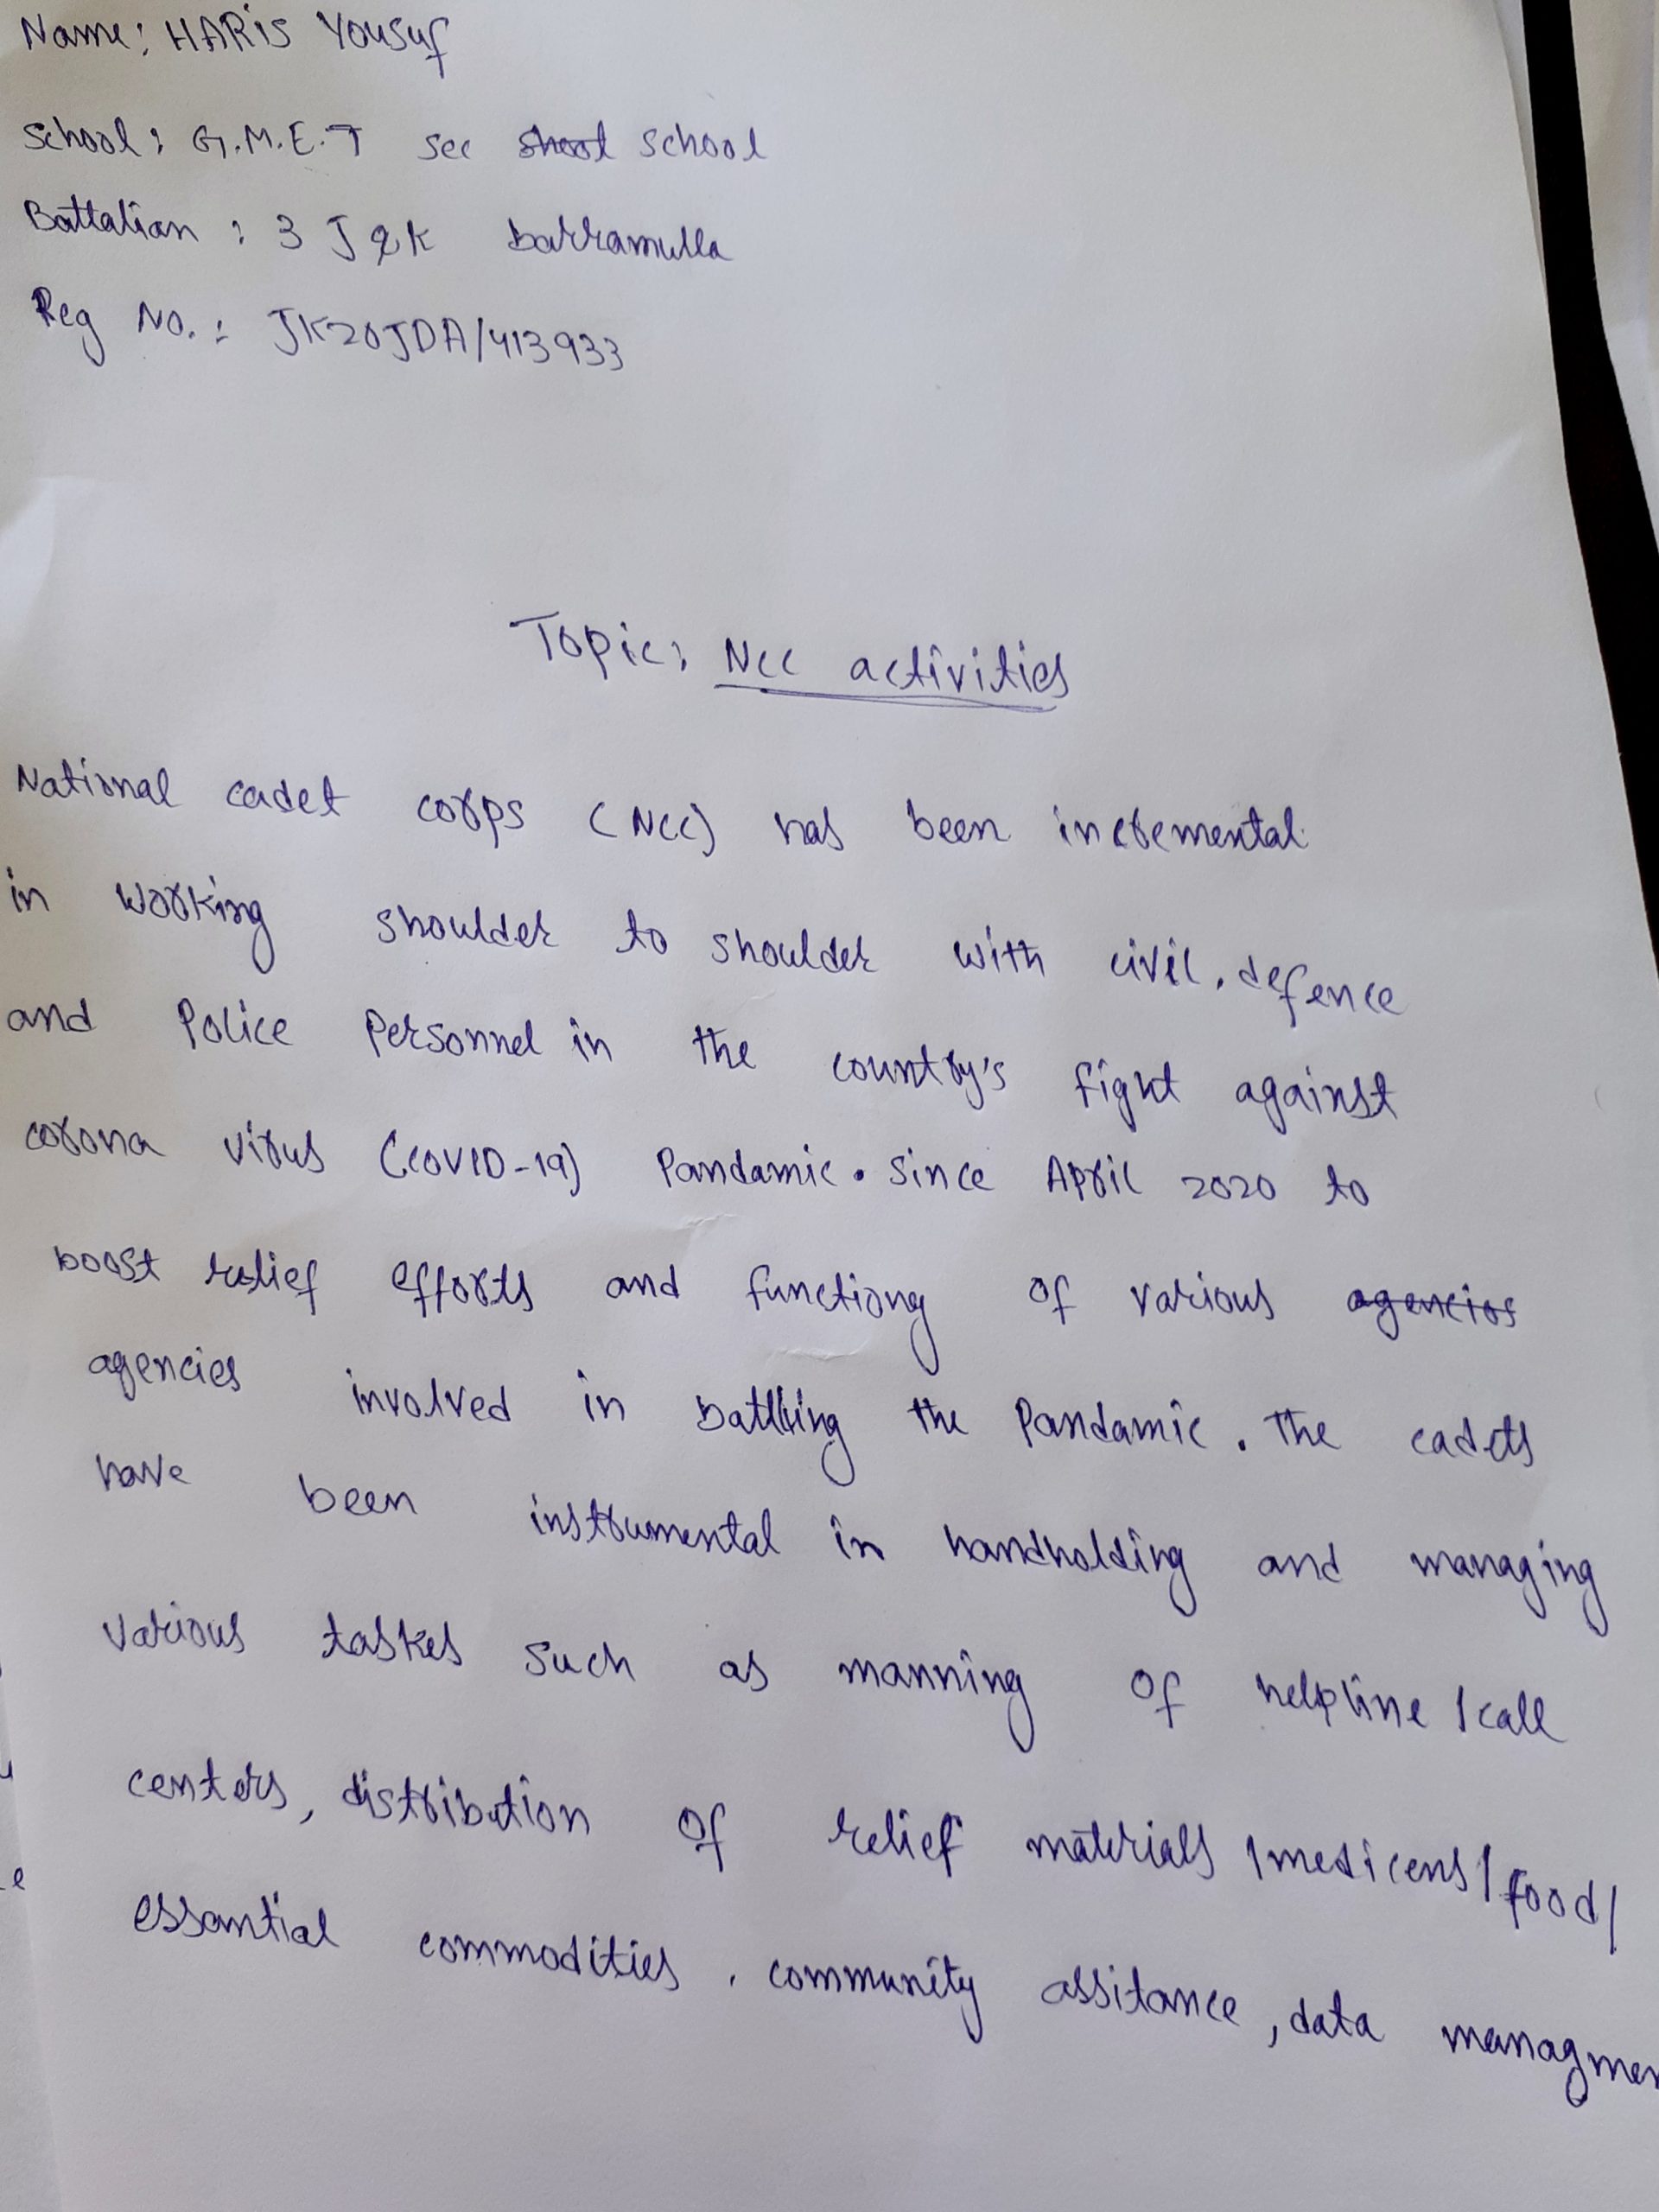 Name: HARis Yousuf
School: G.M.E.T sec shool school
Battalian : 3 J&K barramulla
Reg No.: JK20JDA/413933
Topic: Ncc activities
National cadet corps (NCC) has been incremental
in working shoulder to shoulder with civil, defence
and Police Personnel in the country's fight against
corona virus (COVID-19) Pandamic. Since April 2020 to
boost relief efforts and functiong of various agencies
agencies involved in battlling the Pandamic. The cadets
have been instrumental in handholding and managing
various taskes such as manning of helpline / call
centers, distribution of relief materials / medicens / food /
essantial commodities, community assitance, data managmen